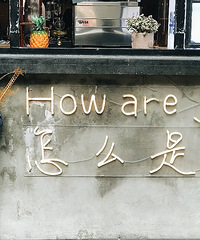 How are
怎么是